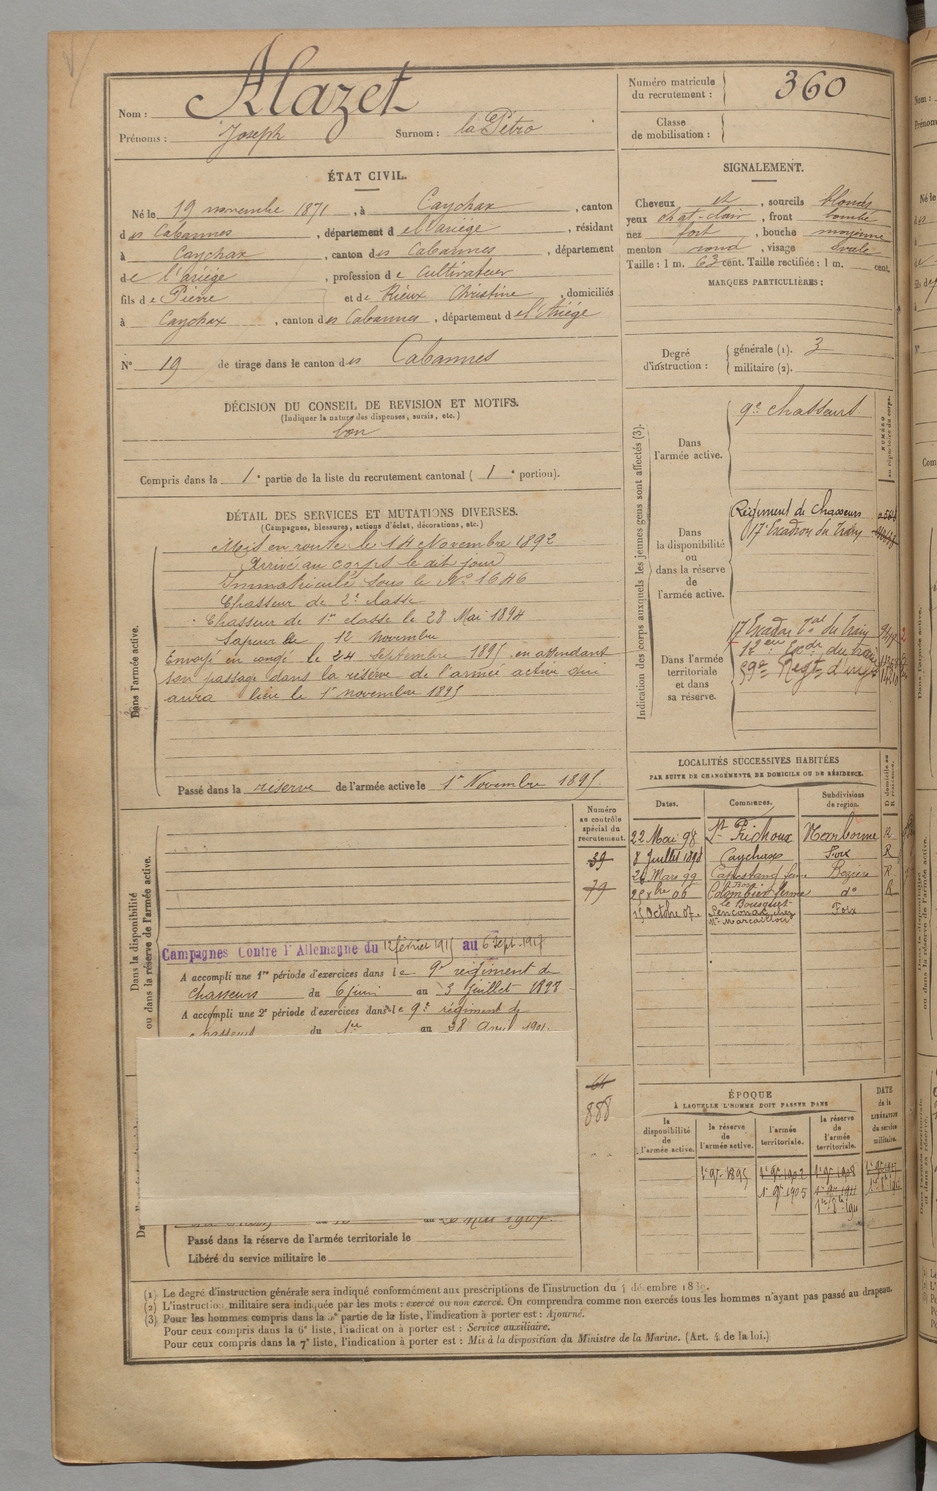 Nom : Alazet
Prénoms : Joseph Surnom : la Pétro
Numéro matricule du recrutement : 360
Classe de mobilisation :
ÉTAT CIVIL.
Né le 19 novembre 1871, à Caychax, canton
des Cabannes, département de l'ariège, résidant
à Caychax, canton des Cabannes, département
de l'ariège, profession de Cultivateur
fils de Pierre et de Rieux Christine, domiciliés
à Caychax, canton des Cabannes, département de l'Ariége
N° 19 de tirage dans le canton des Cabannes
SIGNALEMENT.
Cheveux et, sourcils blonds
yeux chat-clair, front bombé
nez fort, bouche moyenne
menton rond, visage ovale
Taille : 1 m. 63 cent. Taille rectifiée : 1 m. cent.
MARQUES PARTICULIÈRES :
Degré d'instruction : générale (1). 3
militaire (2).
DÉCISION DU CONSEIL DE REVISION ET MOTIFS.
(Indiquer la nature des dispenses, sursis, etc.)
bon
Compris dans la 1e partie de la liste du recrutement cantonal ( 1e portion).
DÉTAIL DES SERVICES ET MUTATIONS DIVERSES.
(Campagnes, blessures, actions d'éclat, décorations, etc.)
Dans l'armée active.
Mis en route le 14 Novembre 1892
Arrivé au corps le dit jour
Immatriculé sous le N° 1646
Chasseur de 2e classe
Chasseur de 1re classe le 28 Mai 1894
Sapeur le 12 novembre
Envoyé en congé le 24 Septembre 1895 en attendant
son passage dans la réserve de l'armée active qui
aura lieu le 1er novembre 1895
Passé dans la réserve de l'armée active le 1er Novembre 1895
Indication des corps auxquels les jeunes gens sont affectés (3).
Dans l'armée active.
9e chasseurs
Dans la disponibilité ou dans la réserve de l'armée active.
Régiment de Chasseurs
17e Escadron du Train
Dans l'armée territoriale et dans sa réserve.
17 Escadron du Train
59e Regt d'inf
LOCALITÉS SUCCESSIVES HABITÉES
PAR SUITE DE CHANGEMENTS DE DOMICILE OU DE RÉSIDENCE.
Dates. Communes. Subdivisions de région.
22 Mai 98 Narbonne R
8 Juillet 1898 Caychax Foix R
26 Mars 99 Capestang Béziers R
25 06 Colombiers d° R
15 Octobre 07 Foix
Numéro au contrôle spécial du recrutement.
39
79
Dans la disponibilité ou dans la réserve de l'armée active.
Campagnes Contre l'Allemagne du 12 février 1915 au 6 Sept. 1917
A accompli une 1re période d'exercices dans le 9e régiment de
Chasseurs du 6 juin au 3 Juillet 1898
A accompli une 2e période d'exercices dans le 9e régiment de
chasseurs du 1er au 28 Avril 1901
888
ÉPOQUE
À LAQUELLE L'HOMME DOIT PASSER DANS
la disponibilité de l'armée active.
la réserve de l'armée active.
l'armée territoriale.
la réserve de l'armée territoriale.
DATE de la LIBÉRATION du service militaire.
1er 9bre 1895
1er 9bre 1905
Passé dans la réserve de l'armée territoriale le
Libéré du service militaire le
(1) Le degré d'instruction générale sera indiqué conformément aux prescriptions de l'instruction du
(2) L'instruction militaire sera indiquée par les mots : exercé ou non exercé. On comprendra comme non exercés tous les hommes n'ayant pas passé au drapeau.
(3) Pour les hommes compris dans la partie de la liste, l'indication à porter est : Ajourné.
Pour ceux compris dans la 6e liste, l'indication à porter est : Service auxiliaire.
Pour ceux compris dans la 7e liste, l'indication à porter est : Mis à la disposition du Ministre de la Marine. (Art. 4 de la loi.)